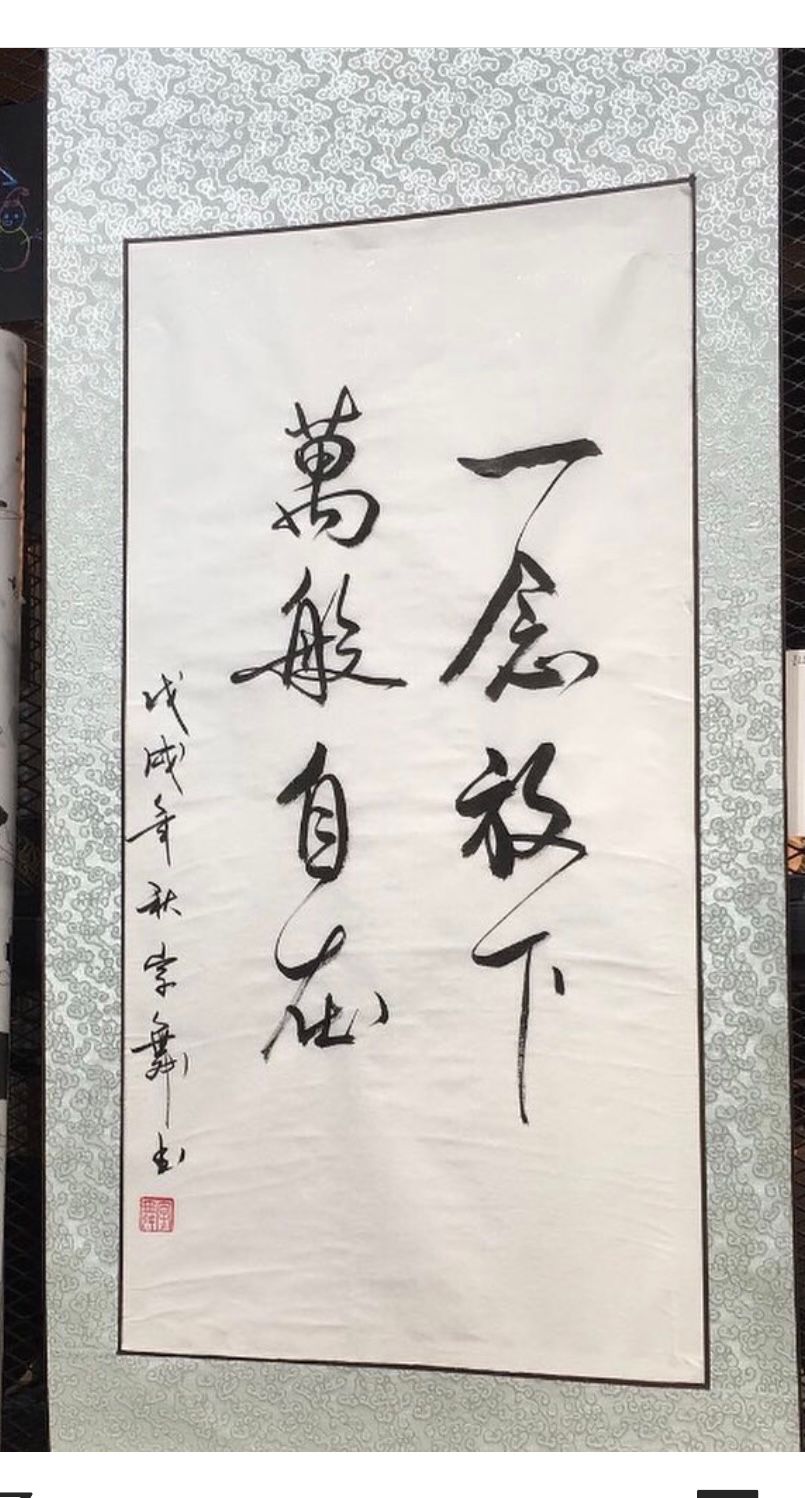 一念放下
萬般自在
戊戌年秋宗舞书